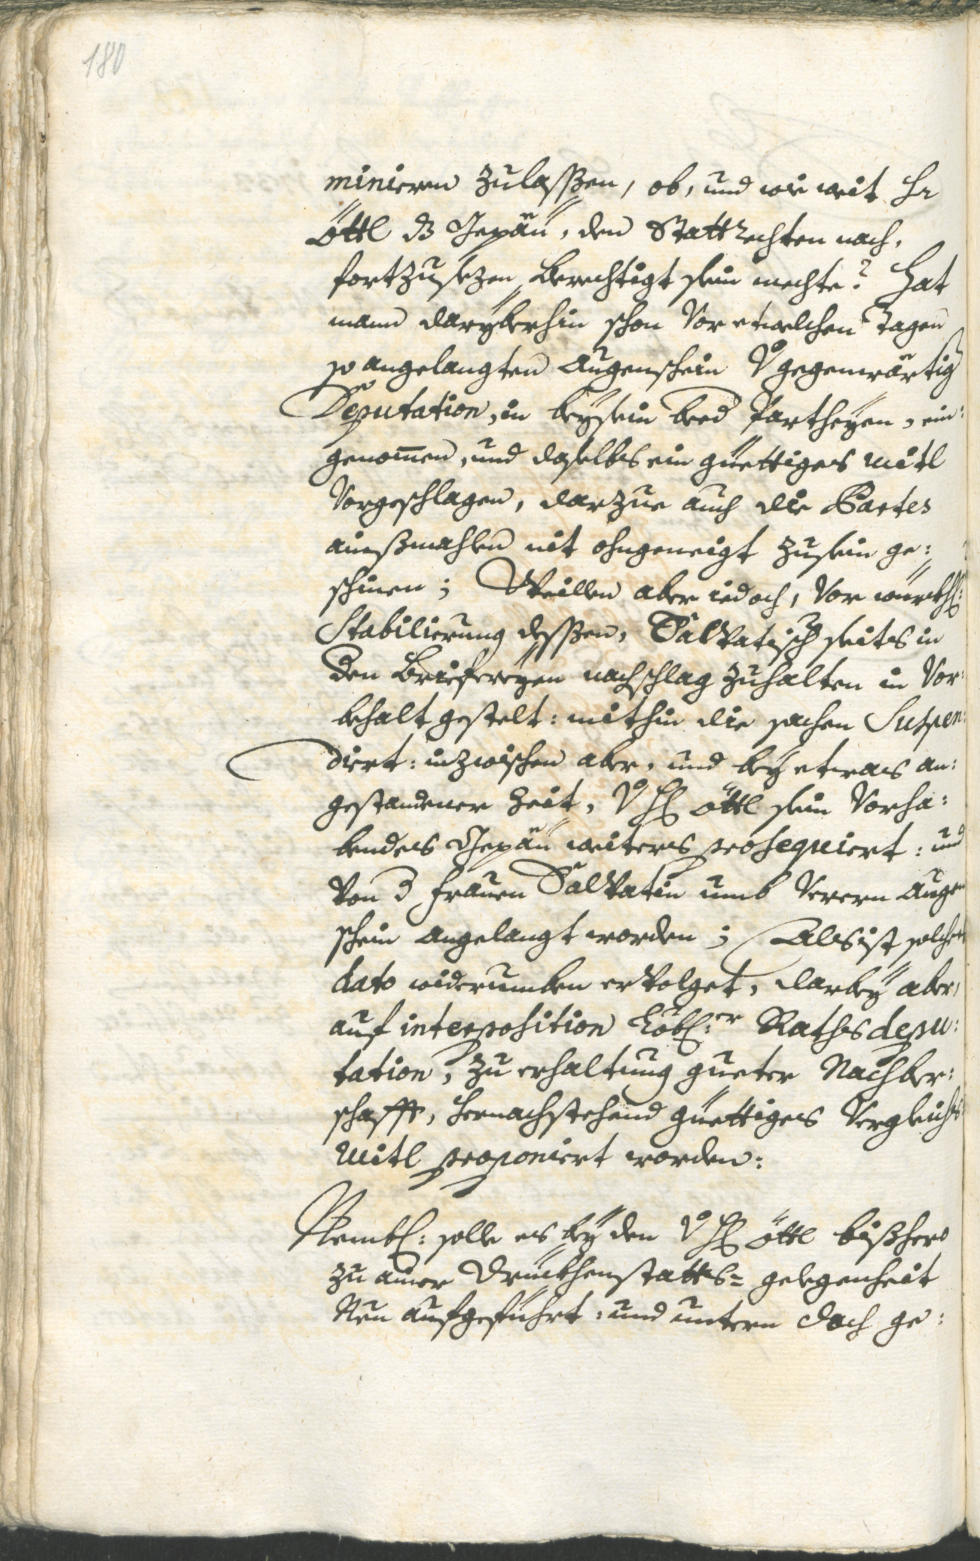 180
minieren zulassßen, ob, und wie weit Hr
Öttl dz Gepäu, den Stattrechten nach,
fortzusezen berechtigt sein mechte? Hat
mann daryberhin schon vor etwelchen tagen
so angelangten Augenschein gegenwärtig
Deputation, in beysein beed Partheyen, ein:
genommen, und daselbs ein güettiges mitl
vorgeschlagen, darzue auch die Partes
ainßmahlen nit ohngeneigt zusein ge:
schinen; Weillen aber iedoch, vor würkhl:
Stabilierung dessßen, Salvatisch seits in
den briefereyen nachschlag zuhalten in vor:
behalt gestelt: mithin die sachen Suspen:
diert: inzwischen aber, und bey etwas an:
gestandener Zeit, Öttl sein vorha:
bendes Gepäu weiters prosequiert: und
von d Frauen Salvatin umb verern Augen
schein angelangt worden; Als ist solcher
dato widerumben ervolget, darbey aber,
auf interposition Löbl:er Rathsdepu:
tation, zu erhaltung gueter Nachber:
schafft, hernachstehend güettiges Vergleichs
Mitl proponiert worden:
Nembl: solle es bey den Öttl bißhero
zu ainer Drückhenstatts= gelegenheit
Neu aufgeführt: und untern dach ge: